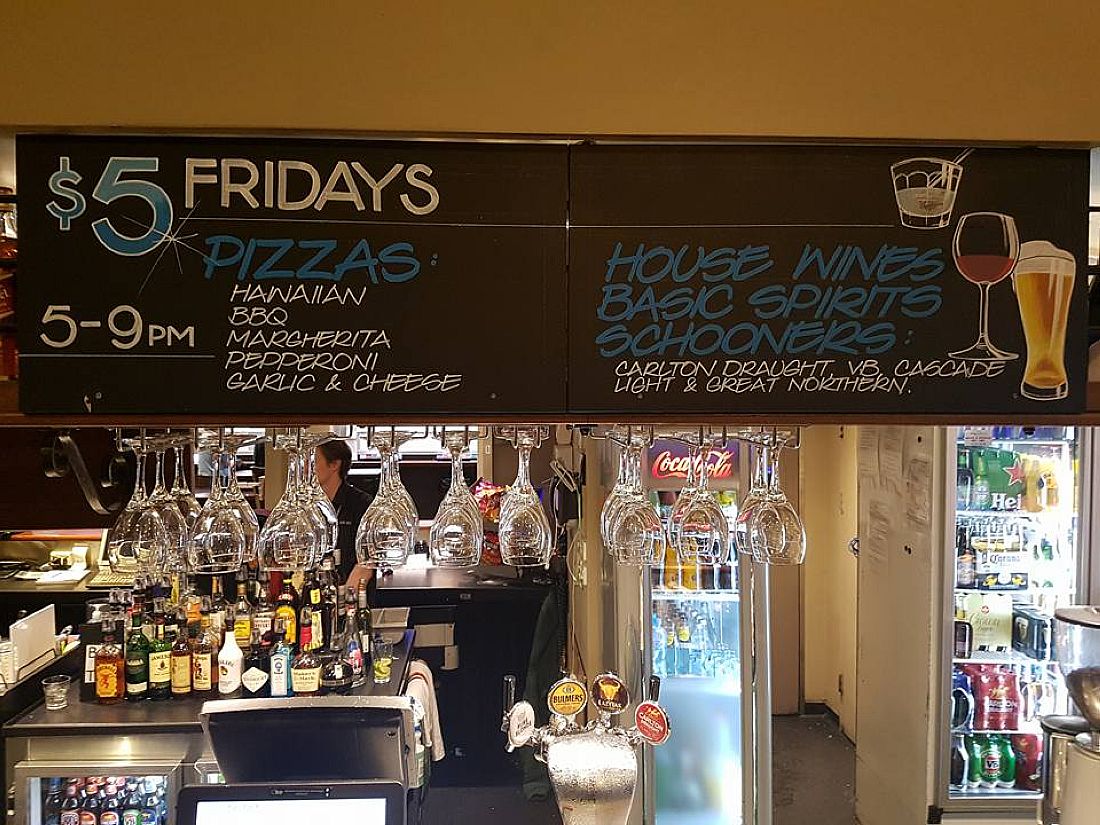 $5 FRIDAYS
5-9PM
PIZZAS:
HAWAIIAN
BBQ
MARGHERITA
PEPPERONI
GARLIC & CHEESE
HOUSE WINES
BASIC SPIRITS
SCHOONERS:
CARLTON DRAUGHT, VB, CASCADE
LIGHT & GREAT NORTHERN.
Coca-Cola
Hei
Corona
BULMERS
CARLTON
JAMESON
VB